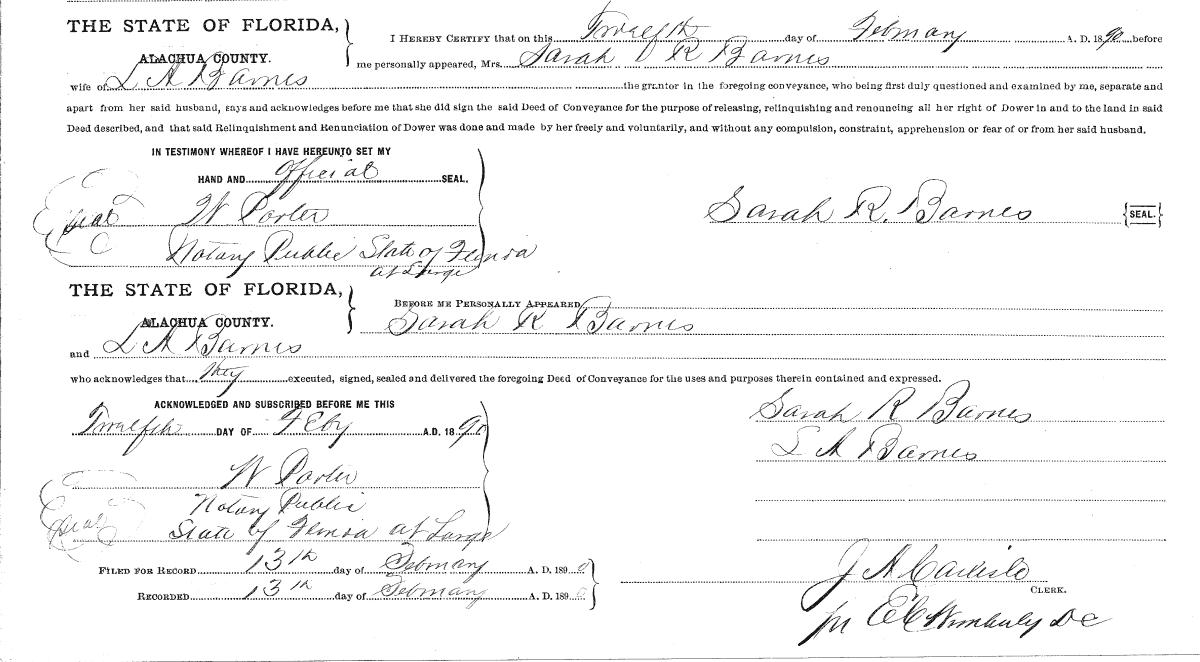 THE STATE OF FLORIDA,
ALACHUA COUNTY.
I HEREBY CERTIFY that on this Twelfth day of February A. D. 1890 before
me personally appeared, Mrs. Sarah R Barnes
wife of L A Barnes the grantor in the foregoing conveyance, who being first duly questioned and examined by me, separate and
apart from her said husband, says and acknowledges before me that she did sign the said Deed of Conveyance for the purpose of releasing, relinquishing and renouncing all her right of Dower in and to the land in said
Deed described, and that said Relinquishment and Renunciation of Dower was done and made by her freely and voluntarily, and without any compulsion, constraint, apprehension or fear of or from her said husband.
IN TESTIMONY WHEREOF I HAVE HEREUNTO SET MY
HAND AND official SEAL.
Seal W Porter
Notary Public State of Florida
at Large
Sarah R. Barnes {SEAL.}
THE STATE OF FLORIDA,
ALACHUA COUNTY.
BEFORE ME PERSONALLY APPEARED
Sarah R Barnes
and L A Barnes
who acknowledges that they executed, signed, sealed and delivered the foregoing Deed of Conveyance for the uses and purposes therein contained and expressed.
ACKNOWLEDGED AND SUBSCRIBED BEFORE ME THIS
Twelfth DAY OF Feby A.D. 1890
W Porter
Notary Public
Seal State of Florida at Large
Sarah R Barnes
L A Barnes
FILED FOR RECORD 13th day of February A. D. 1890
RECORDED 13th day of February A. D. 1890
J A Carlisle
CLERK.
pr E C Wimberly DC